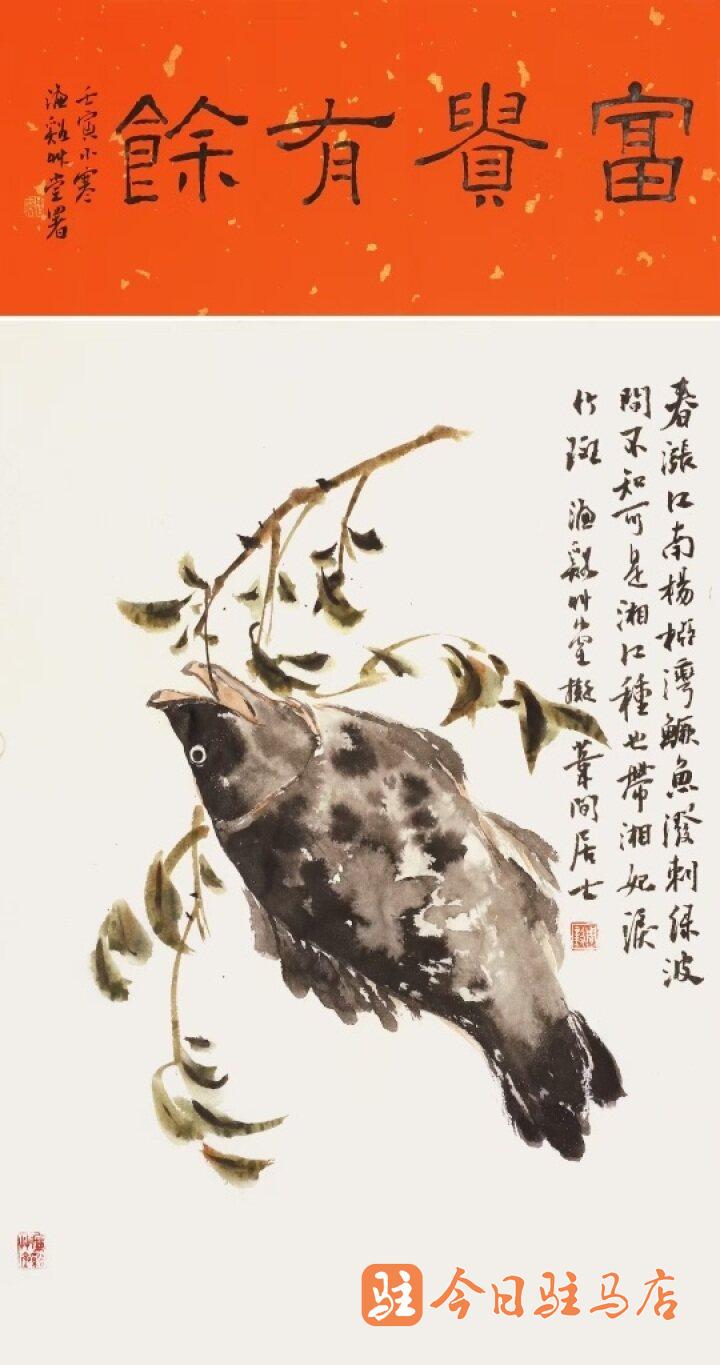 富貴有餘
壬寅小寒
漁谿艸堂署
春漲江南楊柳灣鱖魚潑刺綠波
間不知可是湘江種也帶湘妃淚
竹斑 漁谿艸堂擬葦間居士
驻 今日驻马店